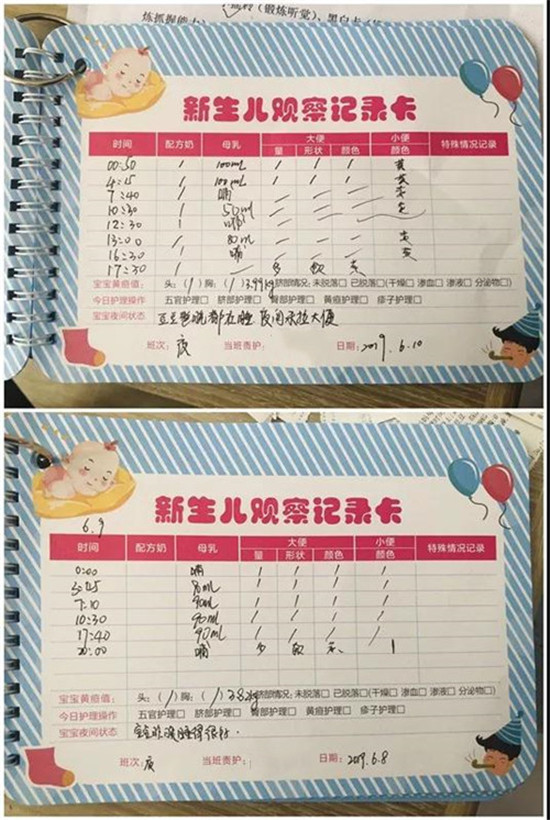 (锻炼听觉)、黑白卡
新生儿观察记录卡
时间 配方奶 母乳 大便 小便 特殊情况记录
量 形状 颜色 颜色
00:50 / 100ml / / / 黄
4:45 / 100ml / / / 黄
7:40 / 哺 / / /
10:30 / 50ml / / /
12:30 / 哺 / /
13:00 / 80ml / / /
16:30 / 哺 / / /
17:30 / 多 软
宝宝黄疸值: 头:(/)胸:(/)3.99kg 脐部情况: 未脱落□ 已脱落□(干燥□ 渗血□ 渗液□ 分泌物□)
今日护理操作 五官护理□ 脐部护理□ 臀部护理□ 黄疸护理□ 疹子护理□
宝宝夜间状态 整晚都在睡 夜间未拉大便
班次: 当班责护: 日期: 2019.6.10
新生儿观察记录卡
6.9
时间 配方奶 母乳 大便 小便 特殊情况记录
量 形状 颜色 颜色
0:00 哺 / / / /
80ml / / / /
7:10 90ml / / / /
10:30 90ml / / / /
17:40 90ml / / / /
20:00 哺 多 软
宝宝黄疸值: 头:(/)胸:(/) 脐部情况: 未脱落□ 已脱落□(干燥□ 渗血□ 渗液□ 分泌物□)
今日护理操作 五官护理□ 脐部护理□ 臀部护理□ 黄疸护理□ 疹子护理□
宝宝夜间状态 宝宝昨晚睡得很好.
班次: 当班责护: 日期: 2019.6.8